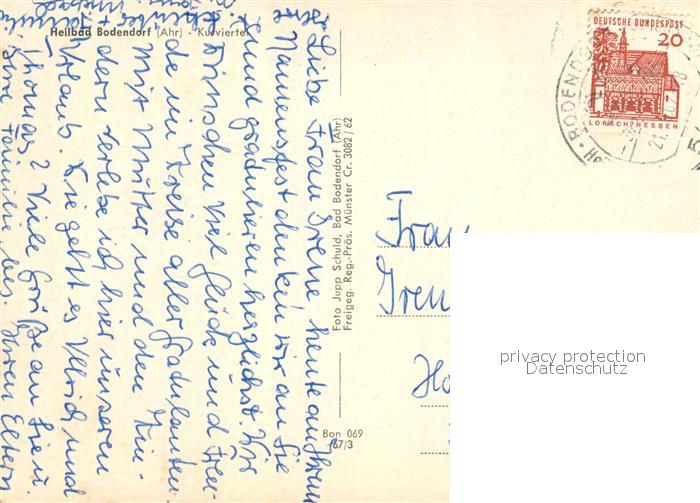 Heilbad Bodendorf (Ahr) - Kurviertel
Liebe Frau Irene, heute an Ihrem
Namensfest denken wir an Sie
und gratulieren herzlichst. Wir
wünschen viel Glück und Freu-
de im Kreise aller Gratulanten
Mit Mutter und den Kin-
dern verlebe ich hier unseren
Urlaub. Wie geht es Ulrich und
Thomas? Viele Grüße an Sie u
Ihre Familie bes. Ihren Eltern
Foto Jupp Schuld, Bad Bodendorf (Ahr)
Freigeg. Reg.-Präs. Münster Cr. 3082/62
Bon 069
67/3
DEUTSCHE BUNDESPOST
20
LORSCH/HESSEN
BODENDO
21.
Frau
Iren
Ho
privacy protection
Datenschutz